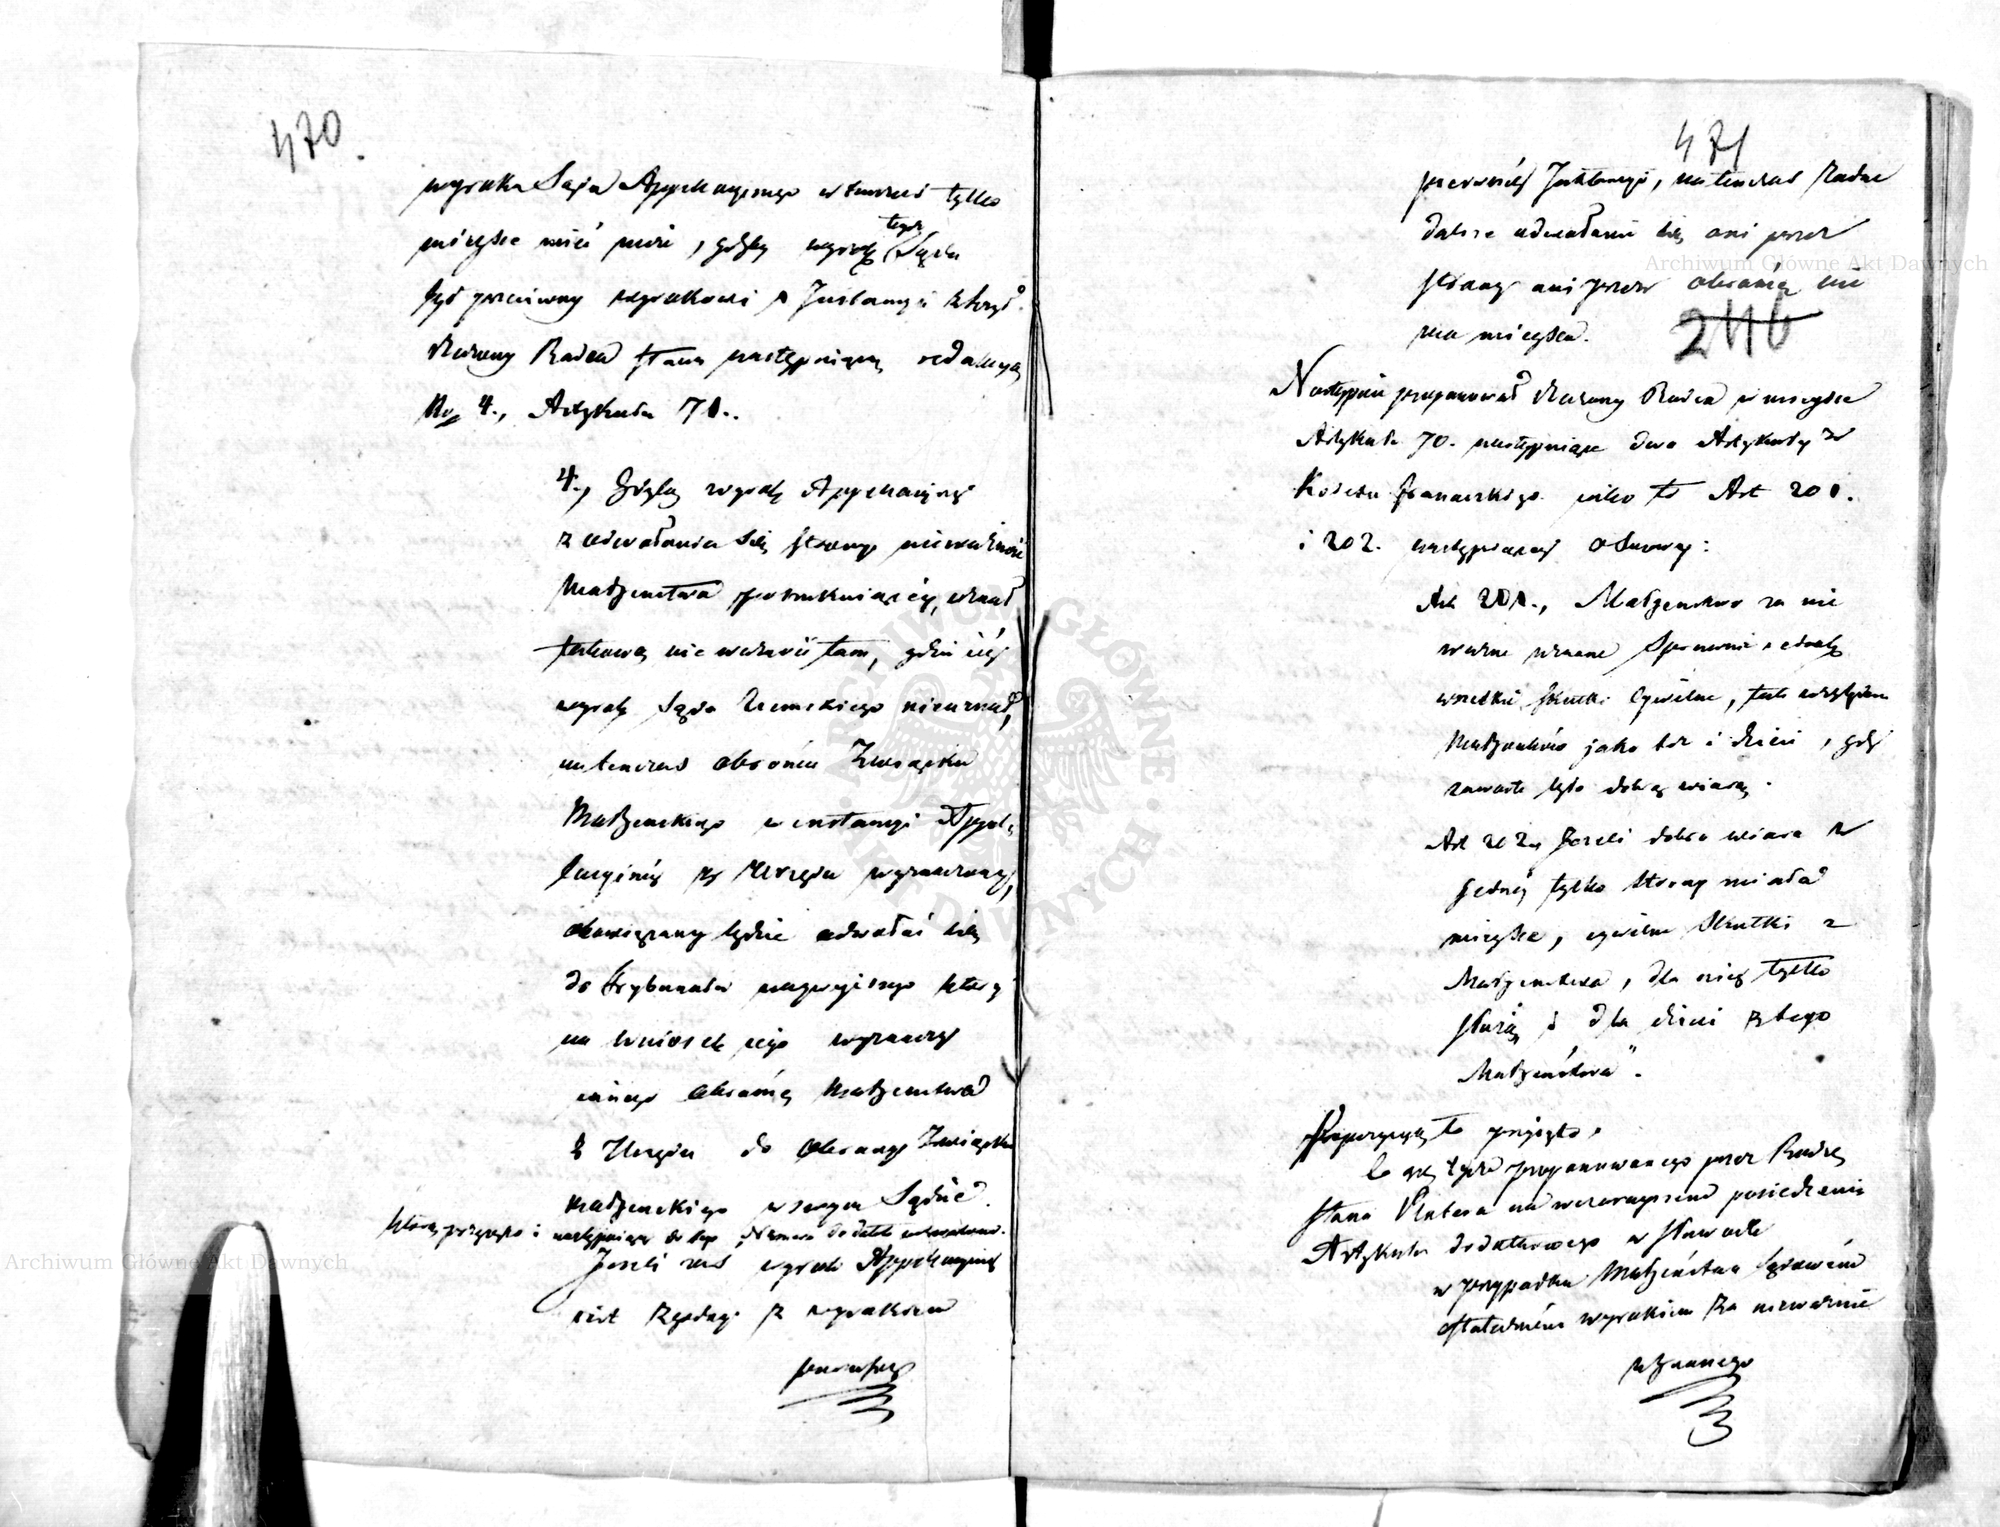 470.
wyroku Sądu Appellacyjnego wtenczas tylko
mieysce mieć może, gdyby wyrok tegoż Sądu
był przeciwny wyrokowi Instancyi
Radca Stanu następuiącą redakcyą
Nr 4., Artykułu 71..
4., Gdyby wyrok Appellacyiny
z odwołania się strony nieważność
Małżeństwa poszukuiącéy, uznał
takową nieważność tam, gdzie iéy
wyrok Sądu Ziemskiego nieuznał,
natenczas obrońca Związku
Małżeńskiego w instancyi Appel-
lacyinéy z Urzędu wyznaczony,
obowiązany będzie odwołać się
do Trybunału który
na wniosek iego wyznaczy
innego obrońcę Małżeństwa
z Urzędu do obrony Związku
Małżeńskiego w swym Sądzie.
którą przyięto i następuiący do tego Numeru dodatek
Jeżeli zaś wyrok Appellacyiny
iest zgodny z wyrokiem
pierwszey
471
pierwszéy Instancyi, natenczas żadne
dalsze odwołanie się ani przez
strony ani przez obrońcę nie
ma mieysca.
2116
Następnie proponował Radca w mieysce
Artykułu 70. następuiące dwa Artykuły z
Kodexu francuzkiego iako to Art 201.
i 202. następuiącey osnowy:
Art 201., Małżeństwo za nie
ważne uznane sprawuie iednak
wszelkie skutki Cywilne, tak względem
Małżonków jako też i dzieci, gdy
zawarte było dobrą wiarą.
Art 202, Jeżeli dobra wiara z
jednéy tylko strony miała
mieysce, cywilne skutki z
Małżeństwa, dla niéy tylko
służą i dla dzieci z tego
Małżeństwa".
Propozycyą tę przyięto,
tegoż proponowanego przez Radcę
Stanu Platera na wczorayszem posiedzeniu
Artykułu dodatkowego w słowach
w przypadku Małżeństwa Sądowém
ostatecznem wyrokiem za nieważne
uznanego